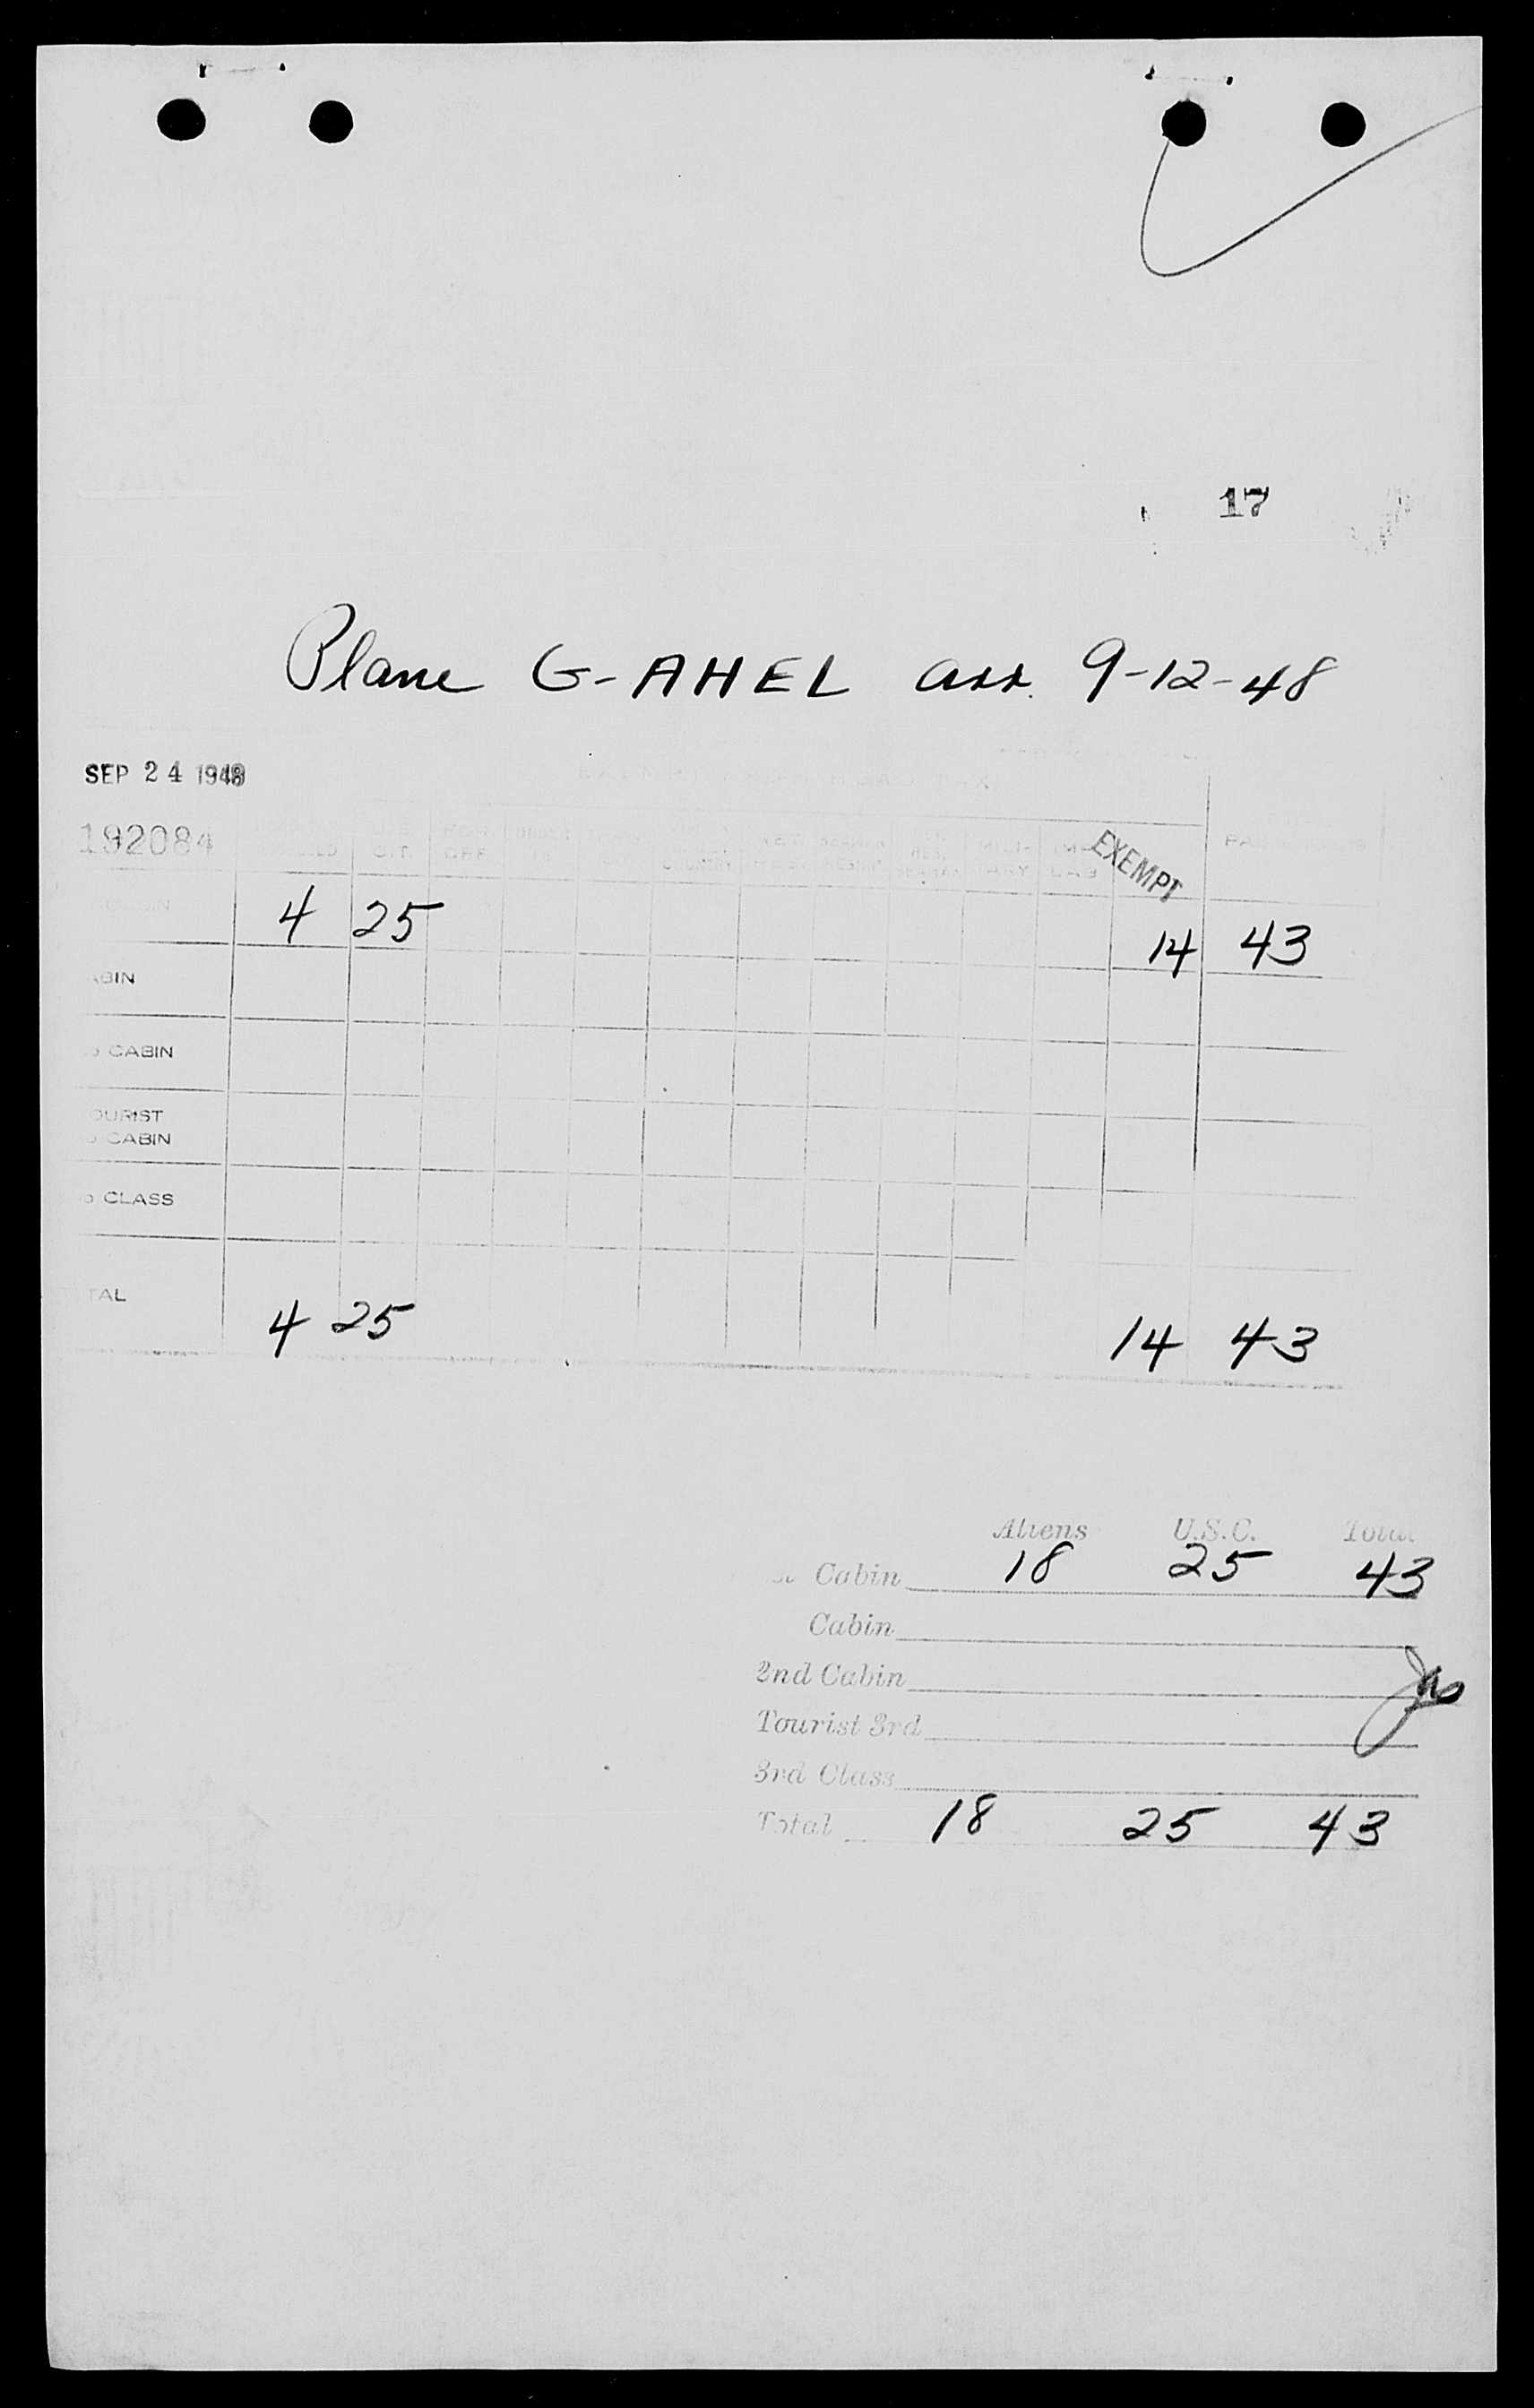 17
Plane G-AHEL arr. 9-12-48
SEP 24 1948
192084
EXEMPT
4 25 14 43
CABIN
CABIN
TOURIST
CABIN
CLASS
TAL
4 25 14 43
Aliens U.S.C. Total
Cabin 18 25 43
Cabin
2nd Cabin
Tourist 3rd
3rd Class
Total 18 25 43